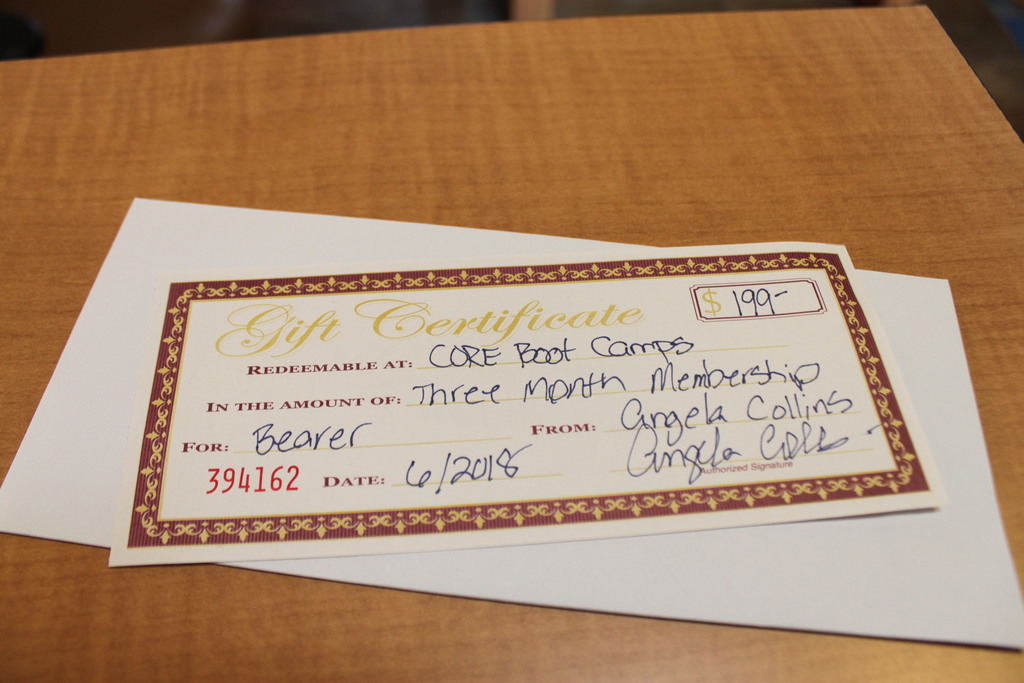 Gift Certificate $ 199-
REDEEMABLE AT: CORE Boot Camps
IN THE AMOUNT OF: Three Month Membership
FOR: Bearer FROM: Angela Collins
394162 DATE: 6/2018 Angela Colls
Authorized Signature